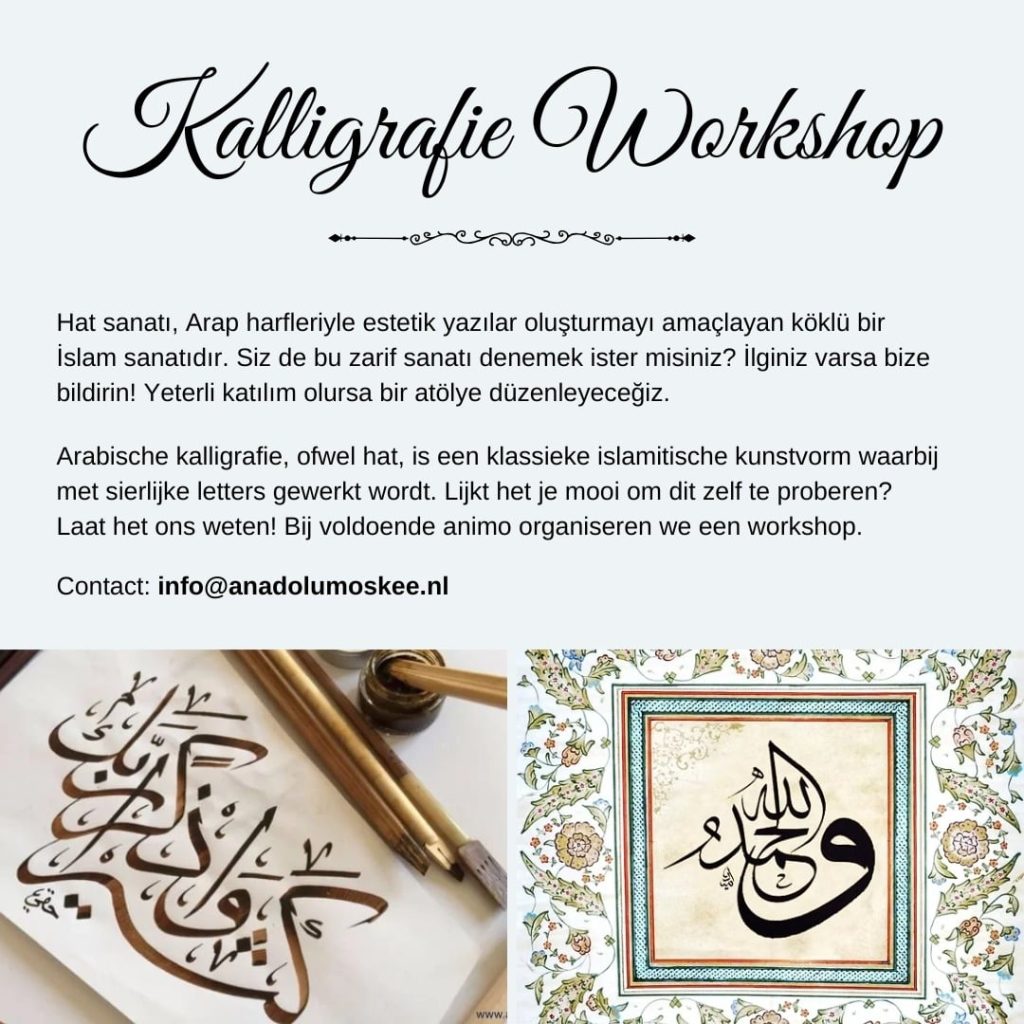 Kalligrafie Workshop
Hat sanatı, Arap harfleriyle estetik yazılar oluşturmayı amaçlayan köklü bir
İslam sanatıdır. Siz de bu zarif sanatı denemek ister misiniz? İlginiz varsa bize
bildirin! Yeterli katılım olursa bir atölye düzenleyeceğiz.
Arabische kalligrafie, ofwel hat, is een klassieke islamitische kunstvorm waarbij
met sierlijke letters gewerkt wordt. Lijkt het je mooi om dit zelf te proberen?
Laat het ons weten! Bij voldoende animo organiseren we een workshop.
Contact: info@anadolumoskee.nl
واذكر ربك كثيرا
والحمد لله